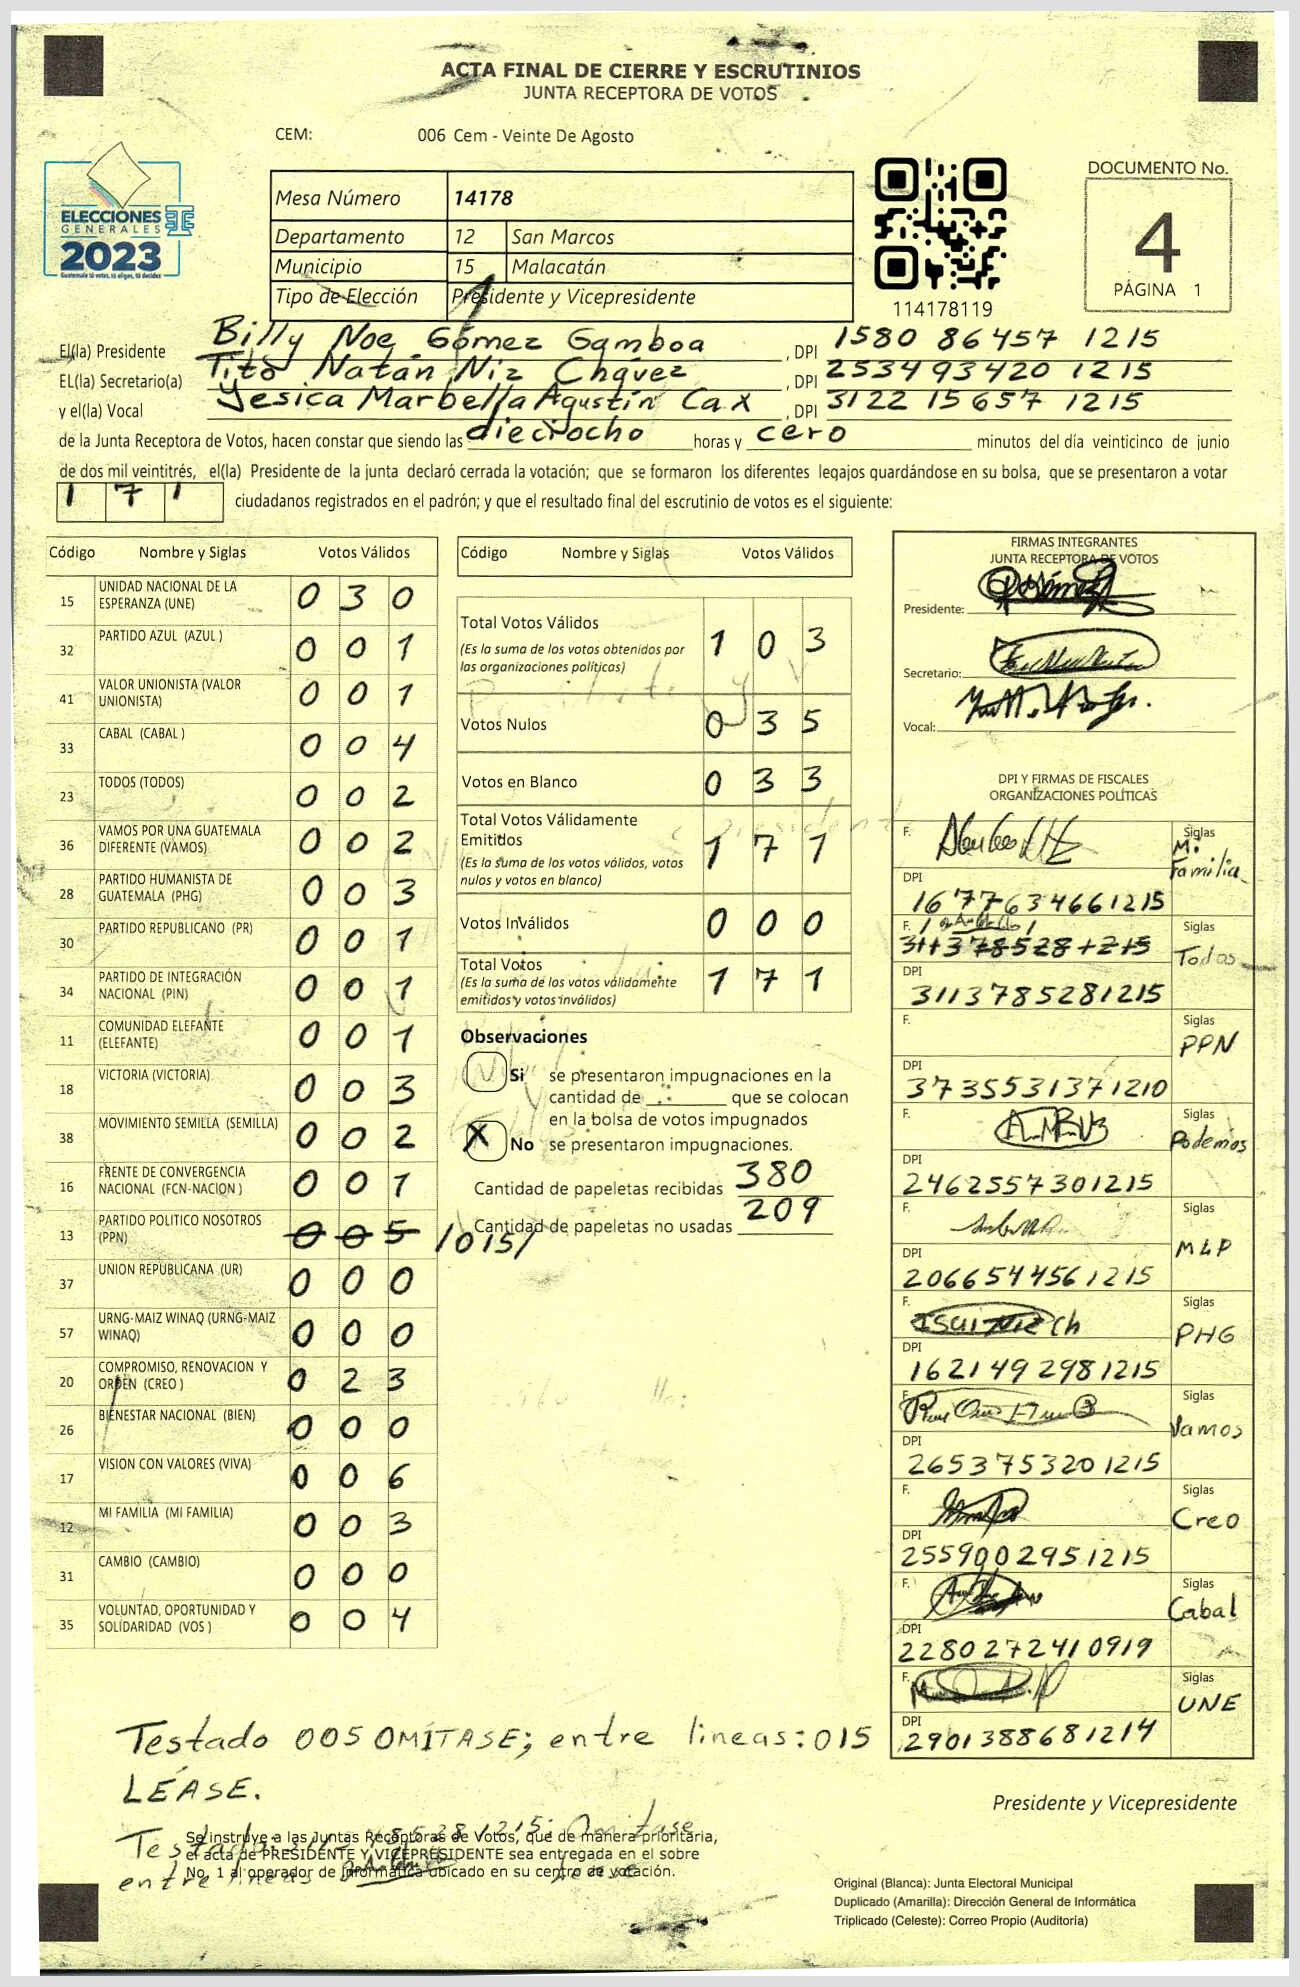 ACTA FINAL DE CIERRE Y ESCRUTINIOS
JUNTA RECEPTORA DE VOTOS
CEM: 006 Cem - Veinte De Agosto
ELECCIONES
GENERALES
2023
Guatemala tú votas, tú eliges, tú decides
Mesa Número 14178
Departamento 12 San Marcos
Municipio 15 Malacatán
Tipo de Elección Presidente y Vicepresidente
114178119
DOCUMENTO No.
4
PÁGINA 1
El(la) Presidente Billy Noe Gómez Gamboa, DPI 1580 86457 1215
EL(la) Secretario(a) Tito Natán Niz Chávez, DPI 253493420 1215
y el(la) Vocal Yesica Marbella Agustín Cax, DPI 3122 15657 1215
de la Junta Receptora de Votos, hacen constar que siendo las dieciocho horas y cero minutos del día veinticinco de junio
de dos mil veintitrés, el(la) Presidente de la junta declaró cerrada la votación; que se formaron los diferentes legajos guardándose en su bolsa, que se presentaron a votar
1 7 1 ciudadanos registrados en el padrón; y que el resultado final del escrutinio de votos es el siguiente:
Código Nombre y Siglas Votos Válidos
15 UNIDAD NACIONAL DE LA ESPERANZA (UNE) 0 3 0
32 PARTIDO AZUL (AZUL ) 0 0 1
41 VALOR UNIONISTA (VALOR UNIONISTA) 0 0 1
33 CABAL (CABAL ) 0 0 4
23 TODOS (TODOS) 0 0 2
36 VAMOS POR UNA GUATEMALA DIFERENTE (VAMOS) 0 0 2
28 PARTIDO HUMANISTA DE GUATEMALA (PHG) 0 0 3
30 PARTIDO REPUBLICANO (PR) 0 0 1
34 PARTIDO DE INTEGRACIÓN NACIONAL (PIN) 0 0 1
11 COMUNIDAD ELEFANTE (ELEFANTE) 0 0 1
18 VICTORIA (VICTORIA) 0 0 3
38 MOVIMIENTO SEMILLA (SEMILLA) 0 0 2
16 FRENTE DE CONVERGENCIA NACIONAL (FCN-NACION ) 0 0 1
13 PARTIDO POLITICO NOSOTROS (PPN) 0 0 5 /015/
37 UNION REPUBLICANA (UR) 0 0 0
57 URNG-MAIZ WINAQ (URNG-MAIZ WINAQ) 0 0 0
20 COMPROMISO, RENOVACION Y ORDEN (CREO ) 0 2 3
26 BIENESTAR NACIONAL (BIEN) 0 0 0
17 VISION CON VALORES (VIVA) 0 0 6
12 MI FAMILIA (MI FAMILIA) 0 0 3
31 CAMBIO (CAMBIO) 0 0 0
35 VOLUNTAD, OPORTUNIDAD Y SOLIDARIDAD (VOS ) 0 0 4
Código Nombre y Siglas Votos Válidos
Total Votos Válidos 1 0 3
(Es la suma de los votos obtenidos por
las organizaciones políticas)
Votos Nulos 0 3 5
Votos en Blanco 0 3 3
Total Votos Válidamente
Emitidos 1 7 1
(Es la suma de los votos válidos, votos
nulos y votos en blanco)
Votos Inválidos 0 0 0
Total Votos 1 7 1
(Es la suma de los votos válidamente
emitidos y votos inválidos)
Observaciones
Si se presentaron impugnaciones en la
cantidad de ______ que se colocan
en la bolsa de votos impugnados
X No se presentaron impugnaciones.
Cantidad de papeletas recibidas 380
Cantidad de papeletas no usadas 209
FIRMAS INTEGRANTES
JUNTA RECEPTORA DE VOTOS
Presidente:
Secretario:
Vocal:
DPI Y FIRMAS DE FISCALES
ORGANIZACIONES POLÍTICAS
F. Siglas Mi Familia
DPI 1677634661215
F. 3113785281215 Siglas Todos
DPI 3113785281215
F. Siglas PPN
DPI 3735531371210
F. Siglas Podemos
DPI 2462557301215
F. Siglas MLP
DPI 2066544561215
F. Siglas PHG
DPI 1621492981215
F. Siglas Vamos
DPI 2653753201215
F. Siglas Creo
DPI 2559002951215
F. Siglas Cabal
DPI 2280272410919
F. Siglas UNE
DPI 2901388681214
Testado 005 OMÍTASE; entre lineas: 015
LÉASE.
Testado: 3113785281215: Omitase
entre lineas lease
Se instruye a las Juntas Receptoras de Votos, que de manera prioritaria,
el acta de PRESIDENTE Y VICEPRESIDENTE sea entregada en el sobre
No. 1 al operador de informática ubicado en su centro de votación.
Presidente y Vicepresidente
Original (Blanca): Junta Electoral Municipal
Duplicado (Amarilla): Dirección General de Informática
Triplicado (Celeste): Correo Propio (Auditoría)